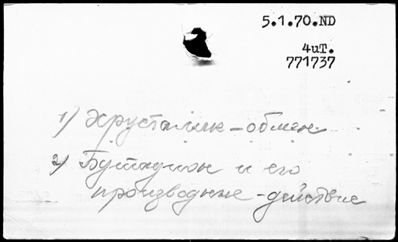 5.1.70.ND
4иТ.
771737
1) Хрусталик - обмен
2) Бутадион и его
производные - действие